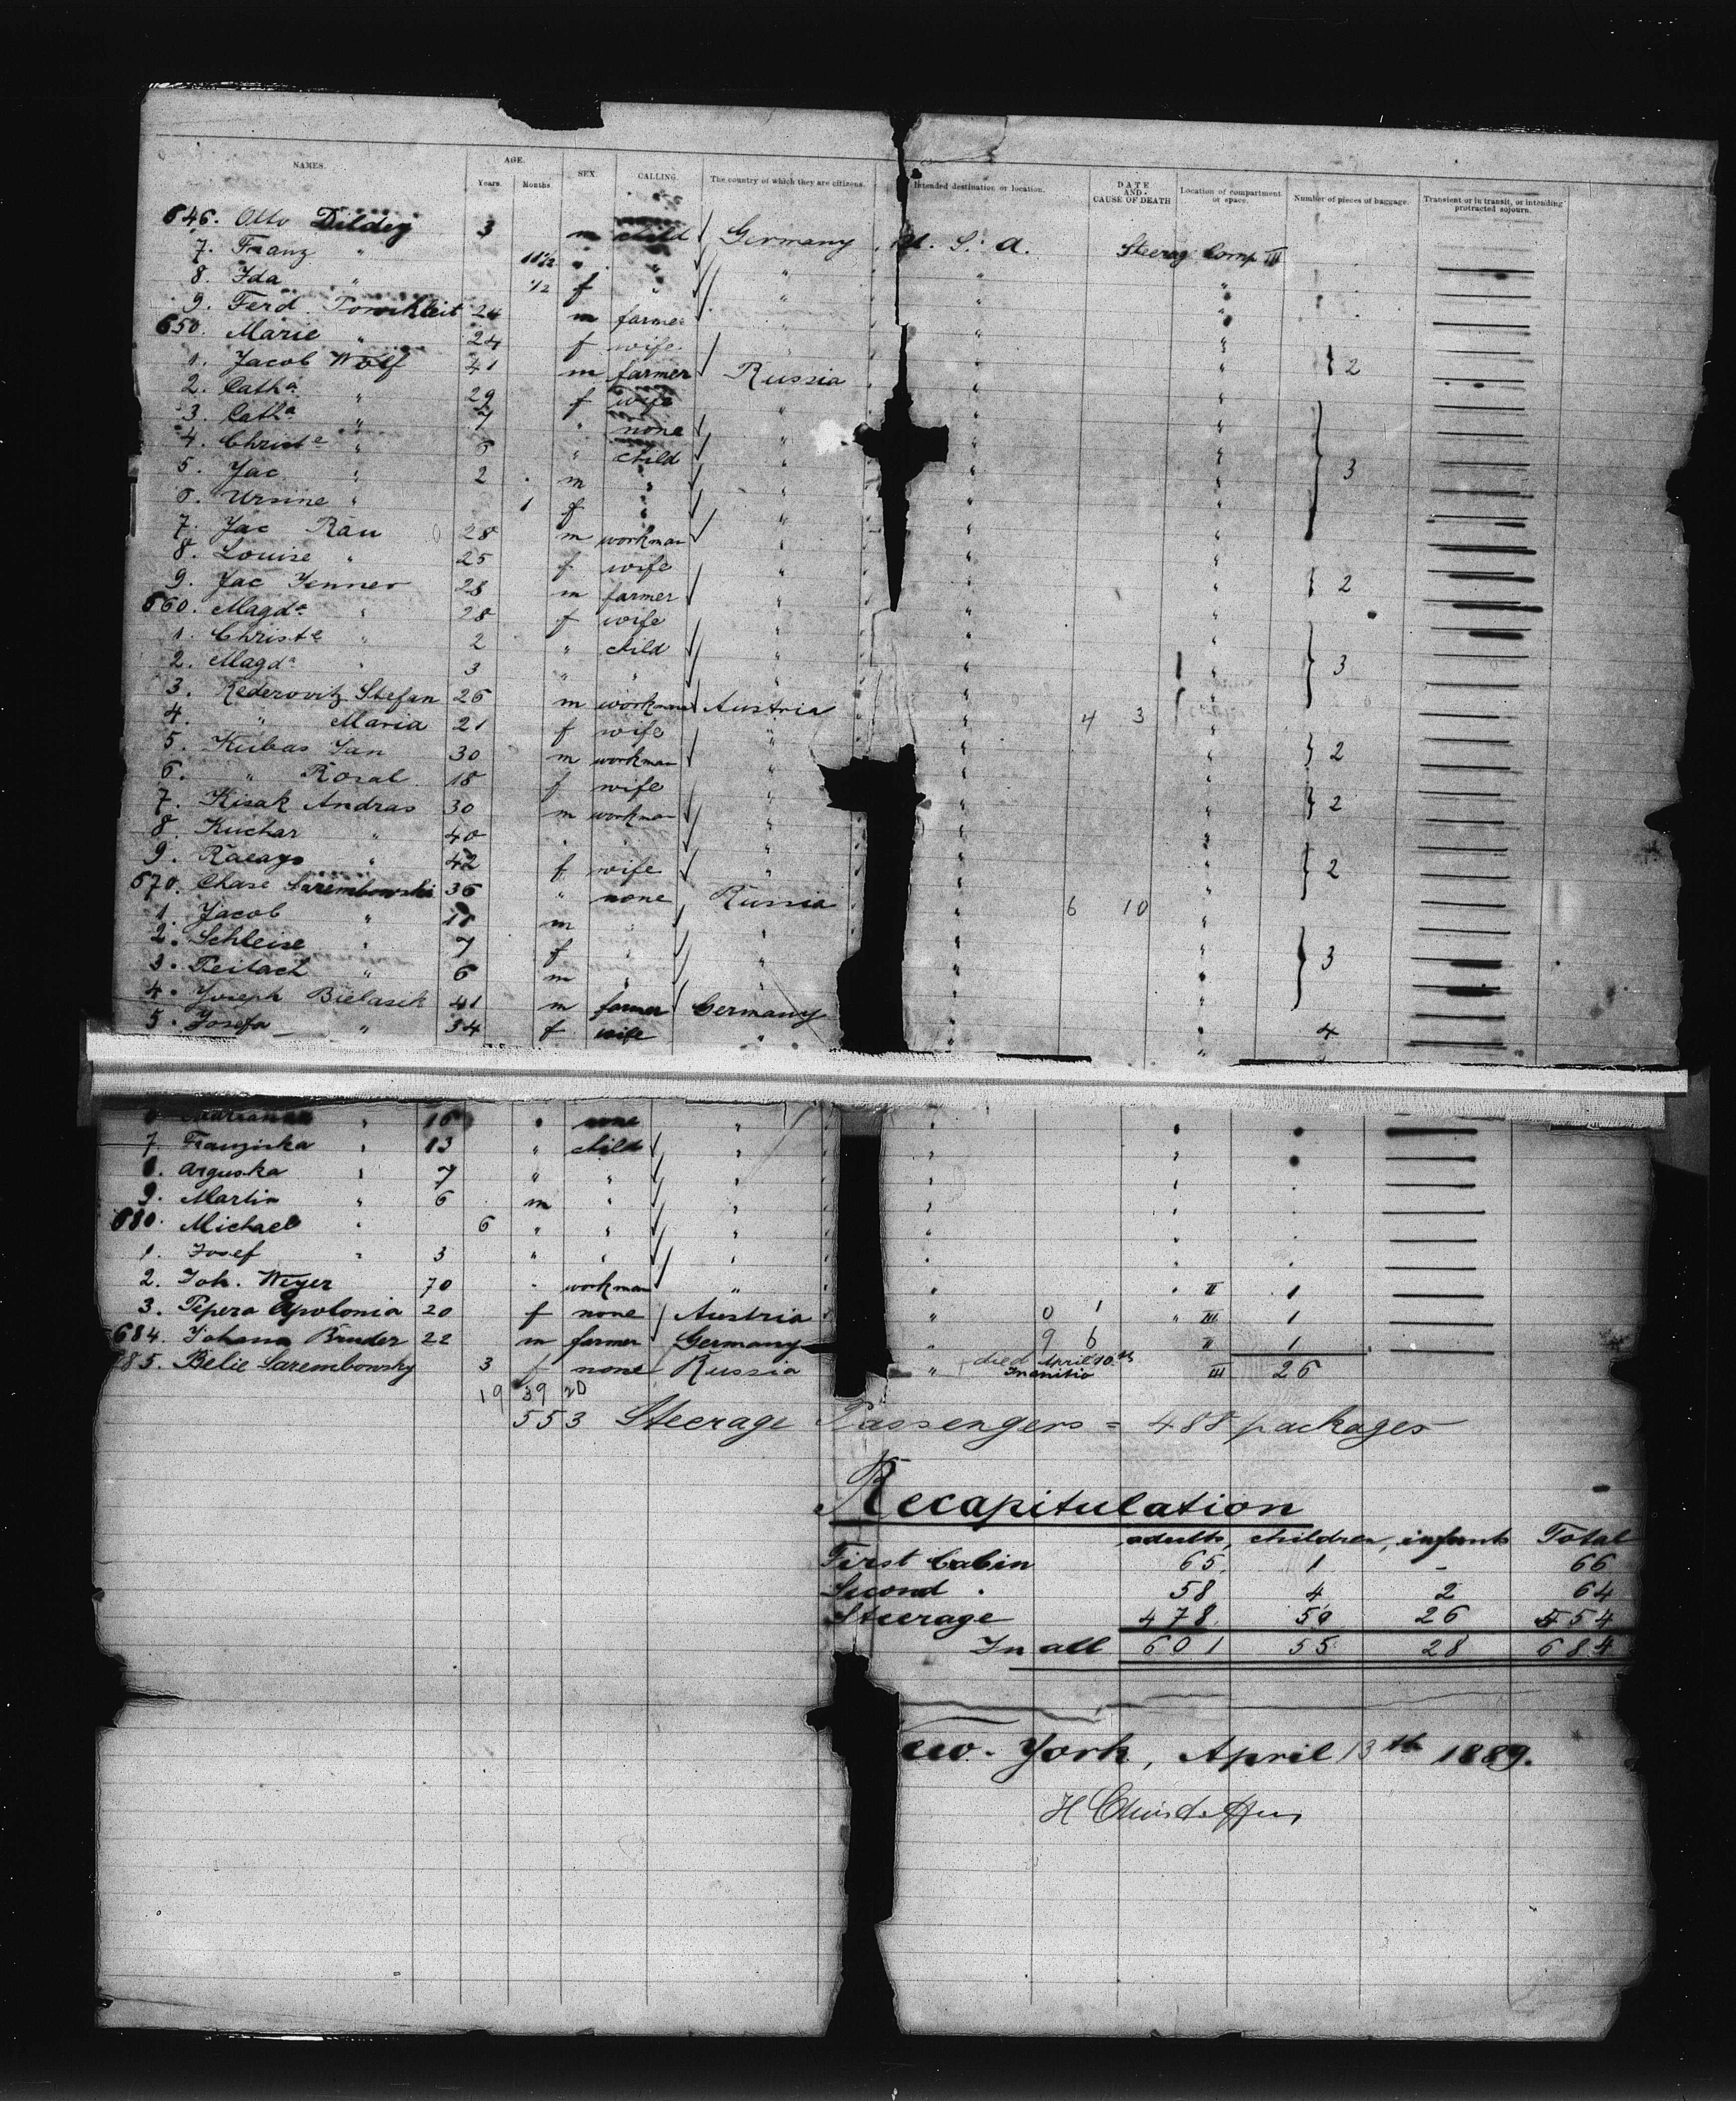 NAMES. AGE. Years. Months. SEX. CALLING. The country of which they are citizens. Intended destination or location. DATE AND CAUSE OF DEATH Location of compartment or space. Number of pieces of baggage. Transient or in transit, or intending protracted sojourn.
646. Otto Dildey 3 m child Germany U. S. A. Steerag Comp III
7. Franz " 11½ " " " "
8. Ida " ½ f " " " "
9. Ferd. 24 m farmer " " "
650. Marie " 24 f wife " " " 2
1. Jacob Wolf 41 m farmer Russia " "
2. Catha " 29 f wife " " "
3. Catha " 7 " none " " "
4. Christe " 6 " child " " " 3
5. Jac " 2 m " " " "
6. Ursine " 1 f " " " "
7. Jac Rau 28 m workman " " "
8. Louise " 25 f wife " " " 2
9. Jac Jenner 28 m farmer " " "
660. Magda " 28 f wife " " "
1. Christe " 2 " child " " " 3
2. Magda " 3 " " " " "
3. Kederovitz Stefan 26 m workman Austria " 4 3 "
4. " Maria 21 f wife " " " 2
5. Kubas Jan 30 m workman " " "
6. " Rosal 18 f wife " " " 2
7. Kisak Andras 30 m workman " " "
8. Kuchar " 40 " " " " "
9. " 42 f wife " " " 2
670. Chase Sarembowski 36 " none Russia " 6 10 "
1. Jacob " 11 m " " " "
2. Schleise " 7 f " " " " 3
3. Peitach " 6 m " " " "
4. Joseph Bielasik 41 m farmer Germany "
5. Josefa " 34 f wife " " 4
6 " 16 " none " " "
7. Franziska " 13 " child " " "
8. Arguska " 7 " " " " "
9. Martin " 6 m " " " "
680. Michael " 6 " " " " "
1. Josef " 3 " " " " "
2. Joh. Weyer 70 " workman " " " II 1
3. Pepera Apolonia 20 f none Austria " 0 1 " III 1
684. Johann Bruder 22 m farmer Germany 9 6 II 1
685. Belie Sarembowsky 3 f none Russia " died April 10.th Inanitio III 26
19 39 20
553 Steerage Passengers = 488 packages
Recapitulation
adults, children, infants Total
First Cabin 65. 1 - 66
Second " 58 4 2 64
Steerage 478 50 26 554
In all 601 55 28 684
ew-York, April 13th 1889.